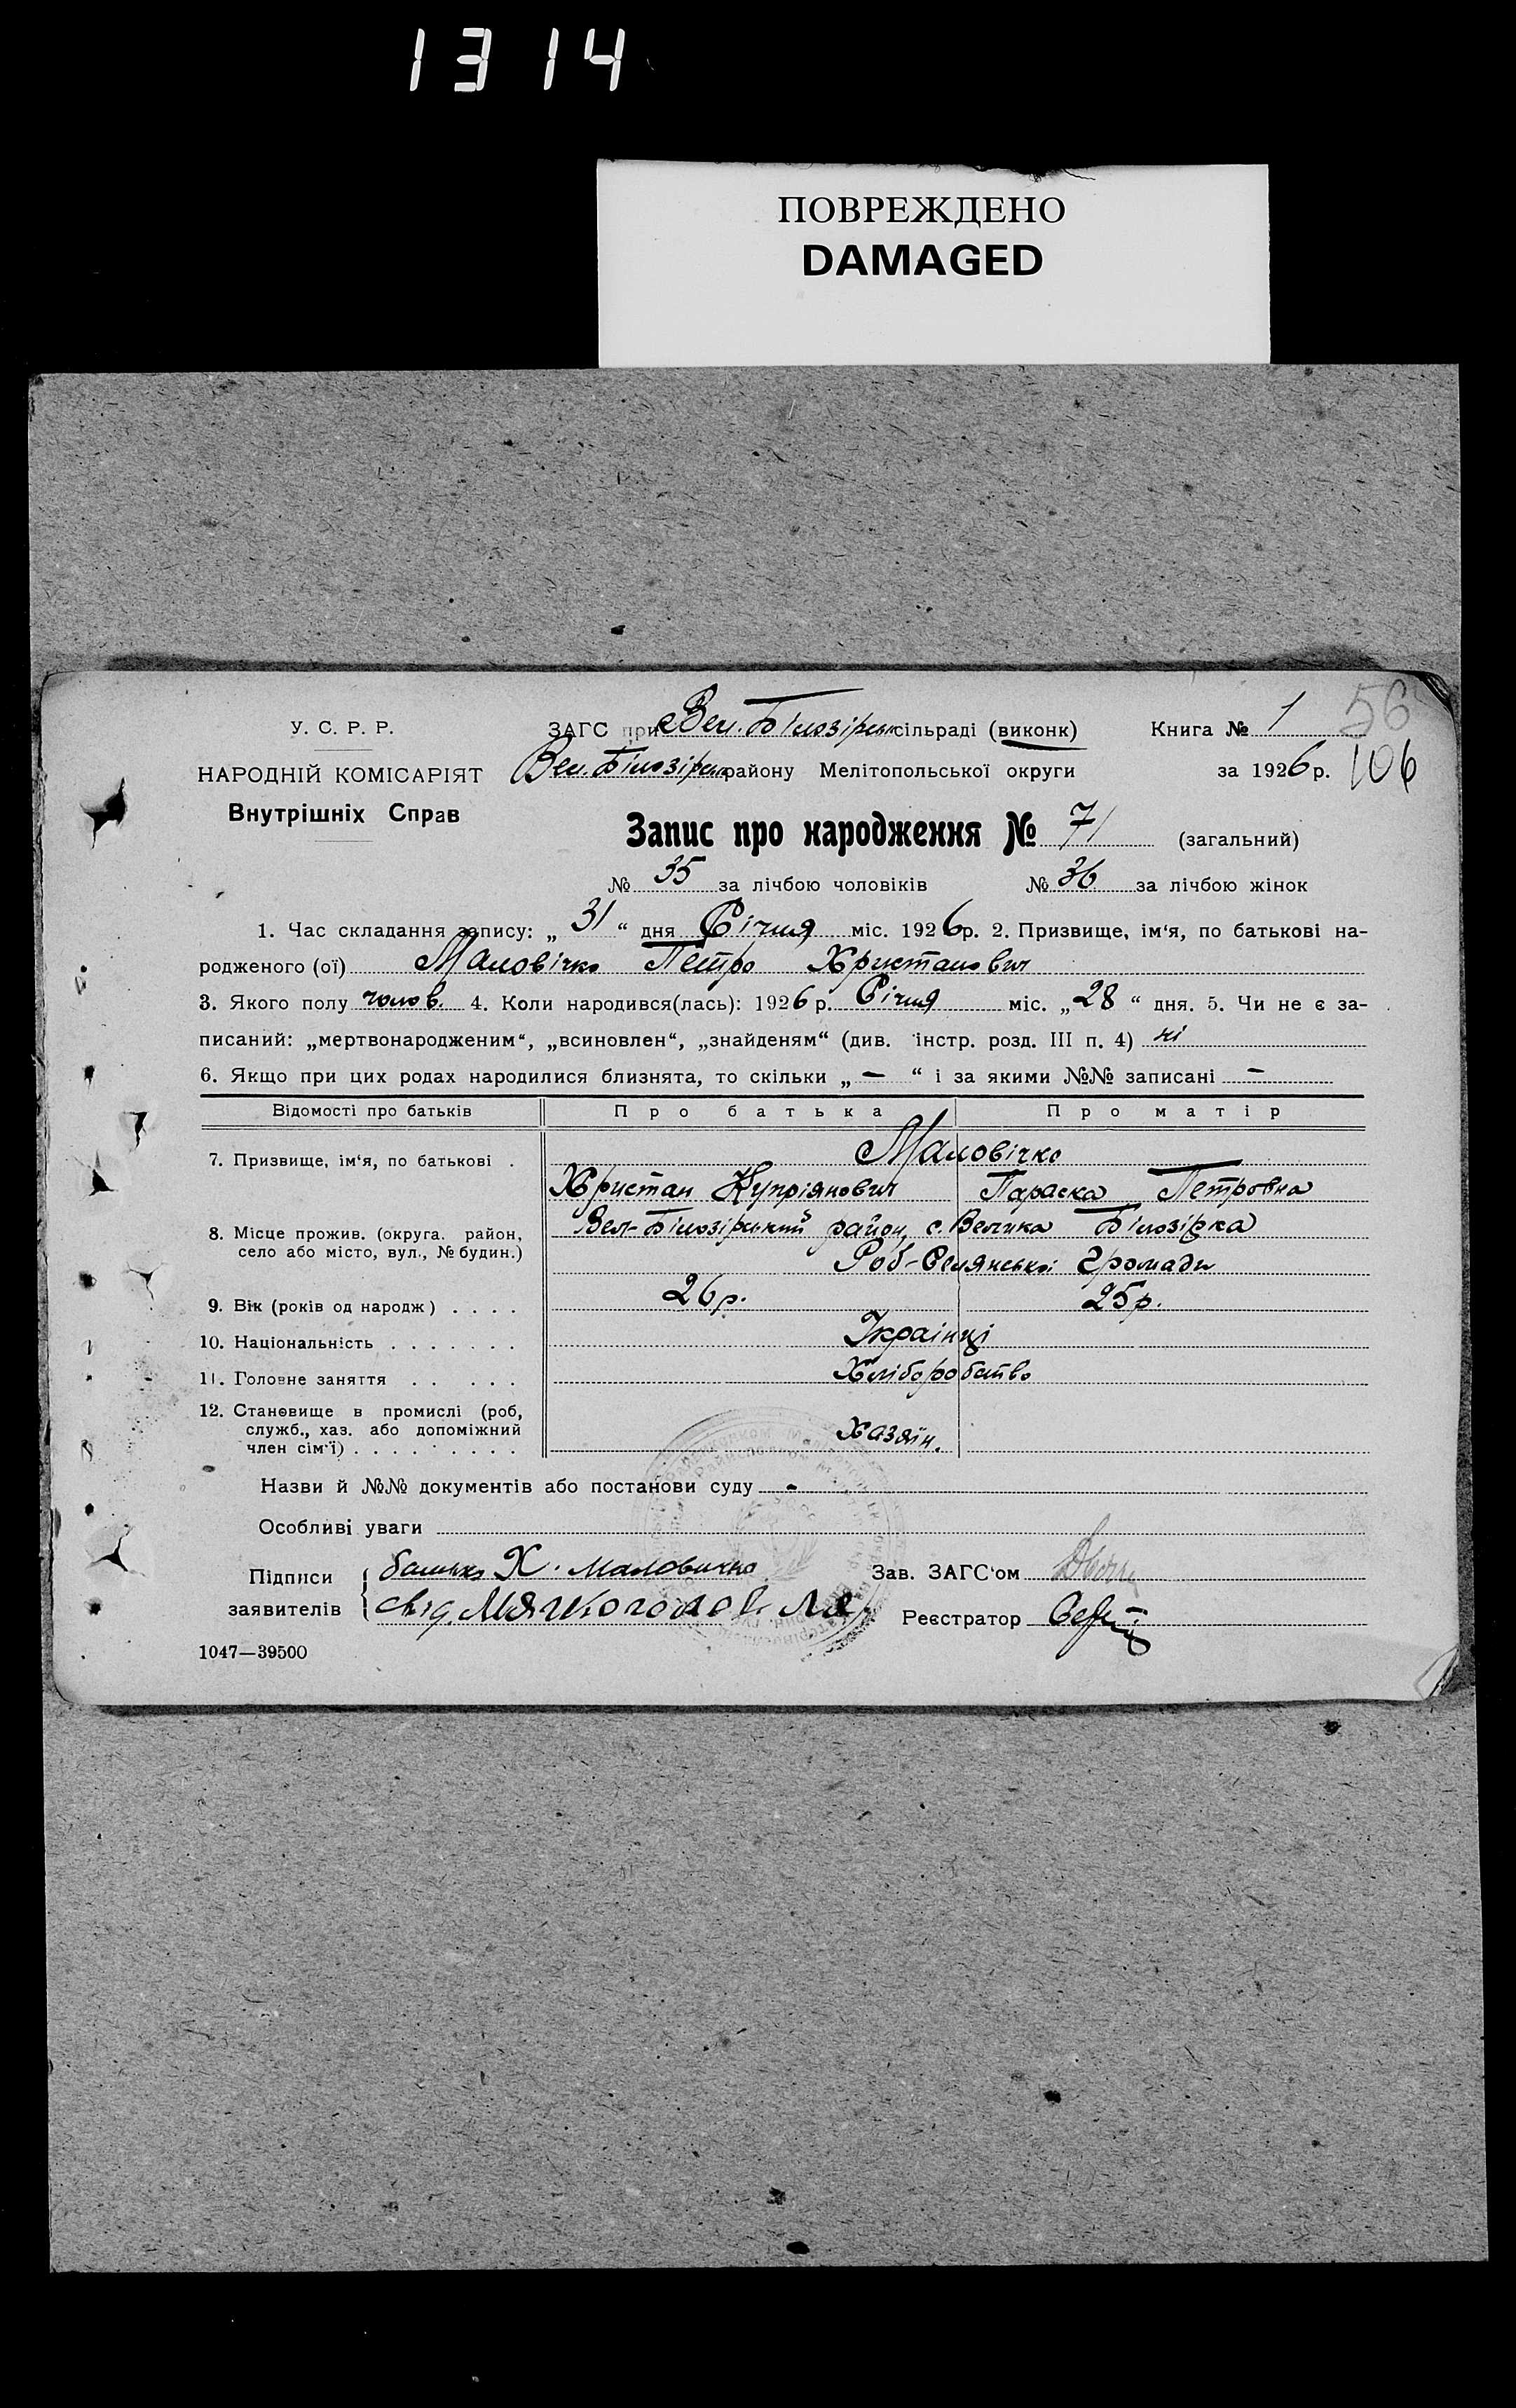 1314
ПОВРЕЖДЕНО
DAMAGED
56
У. С. Р. Р. ЗАГС при Вел. Білозірськ сільраді (виконк) Книга № 1
НАРОДНІЙ КОМІСАРІЯТ Вел. Білозірськ району Мелітопольської округи за 1926 р. 106
Внутрішніх Справ
Запис про народження № 71 (загальний)
№ 35 за лічбою чоловіків № 36 за лічбою жінок
1. Час складання запису: „ 31 “ дня Січня міс. 1926 р. 2. Призвище, ім‘я, по батькові на-
родженого (ої) Маловічко Петро Христанович
3. Якого полу чолов. 4. Коли народився(лась): 1926 р. Січня міс. „ 28 “ дня. 5. Чи не є за-
писаний: „мертвонародженим“, „всиновлен“, „знайденям“ (див. інстр. розд. III п. 4) ні
6. Якщо при цих родах народилися близнята, то скільки „ — “ і за якими №№ записані —
Відомості про батьків Про батька Про матір
7. Призвище, ім‘я, по батькові . Маловічко
Христан Купріянович Параска Петровна
8. Місце прожив. (округа, район, село або місто, вул., № будин.) Вел-Білозірський район, с. Велика Білозірка
Роб-Селянської Громади
9. Вік (років од народж) . . . . 26 р. 25 р.
10. Національність . . . . . . . Українці
11. Головне заняття . . . . . Хліборобство
12. Становище в промислі (роб,
служб., хаз. або допоміжний
член сім‘ї) . . . . . . . . . Хазяїн.
Назви й №№ документів або постанови суду -
Особливі уваги
Підписи батько Х. Маловичко Зав. ЗАГС‘ом
заявителів Мягкоголов Реєстратор
1047—39500